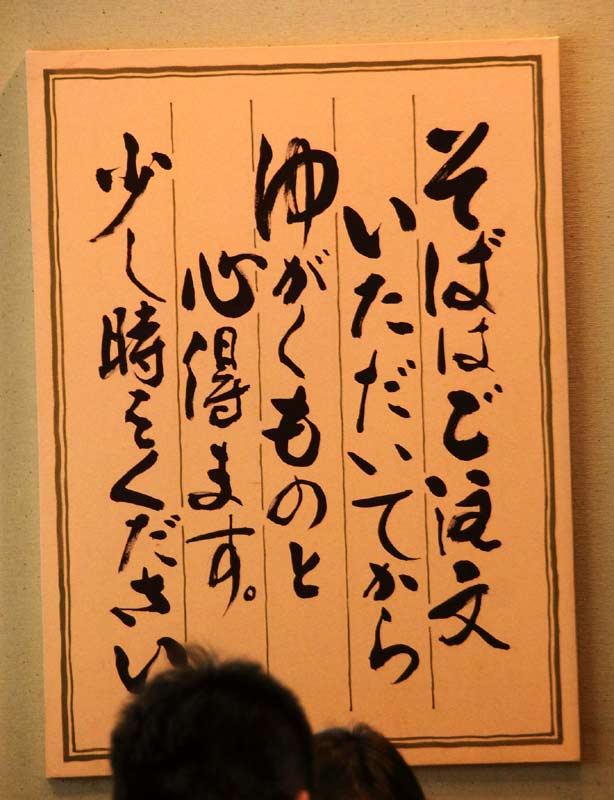 そばはご注文
いただいてから
ゆがくものと
心得ます。
少し時をください